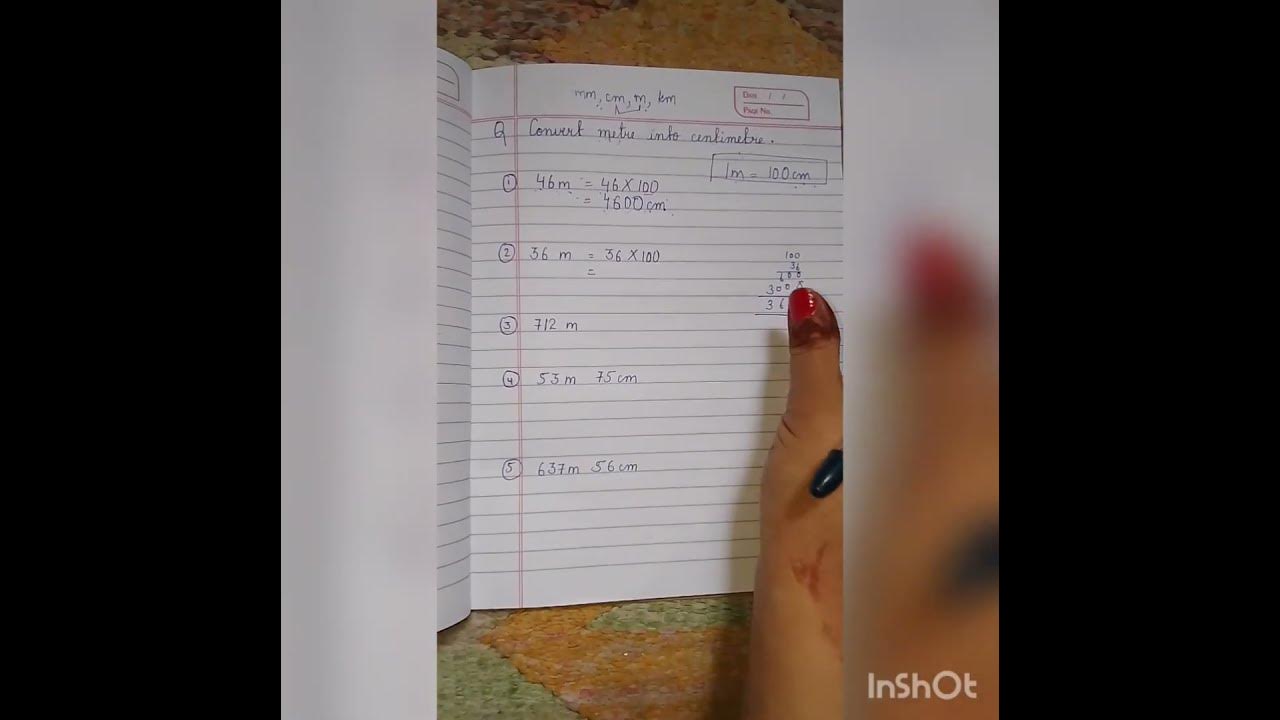 mm, cm, m, km
Date / /
Page No.
Q Convert metre into centimetre.
1m = 100cm
① 46m = 46 X 100
= 4600 cm
② 36 m = 36 X 100
=
100
36
600
300
36
③ 712 m
④ 53m 75cm
⑤ 637m 56cm
InShOt